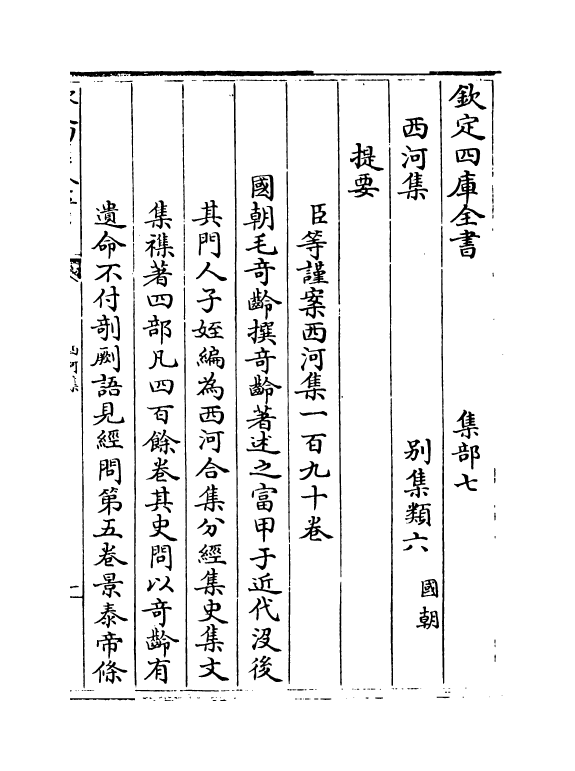 欽定四庫全書 集部七
西河集 别集類六 國朝
提要
臣等謹案西河集一百九十卷
國朝毛奇齡撰奇齡著述之富甲于近代沒後
其門人子姪編為西河合集分經集史集文
集襍著四部凡四百餘卷其史問以奇齡有
遺命不付剞劂語見經問第五卷景泰帝條
西河集